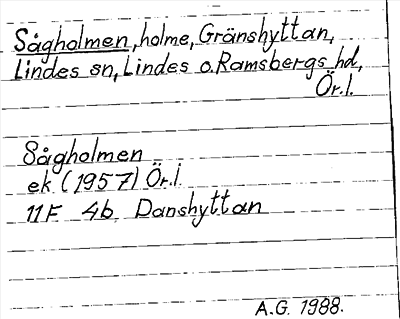 Sågholmen, holme, Gränshyttan,
Lindes sn, Lindes o. Ramsbergs hd,
Ör.l.
Sågholmen
ek. (1957) Ör.l.
11F 4b Danshyttan
A.G. 1988.